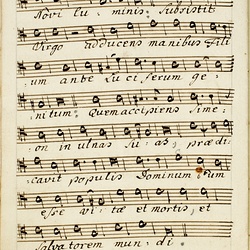 Novi lu- minis. Subsistit
Virgo adducens manibus Fili
um ante Luciferum ge-
nitum. Quem accipiens Sime-
on in ulnas suas, prædi-
cavit populis Dominum eum
esse vitæ et mortis, et
Salvatorem mundi.